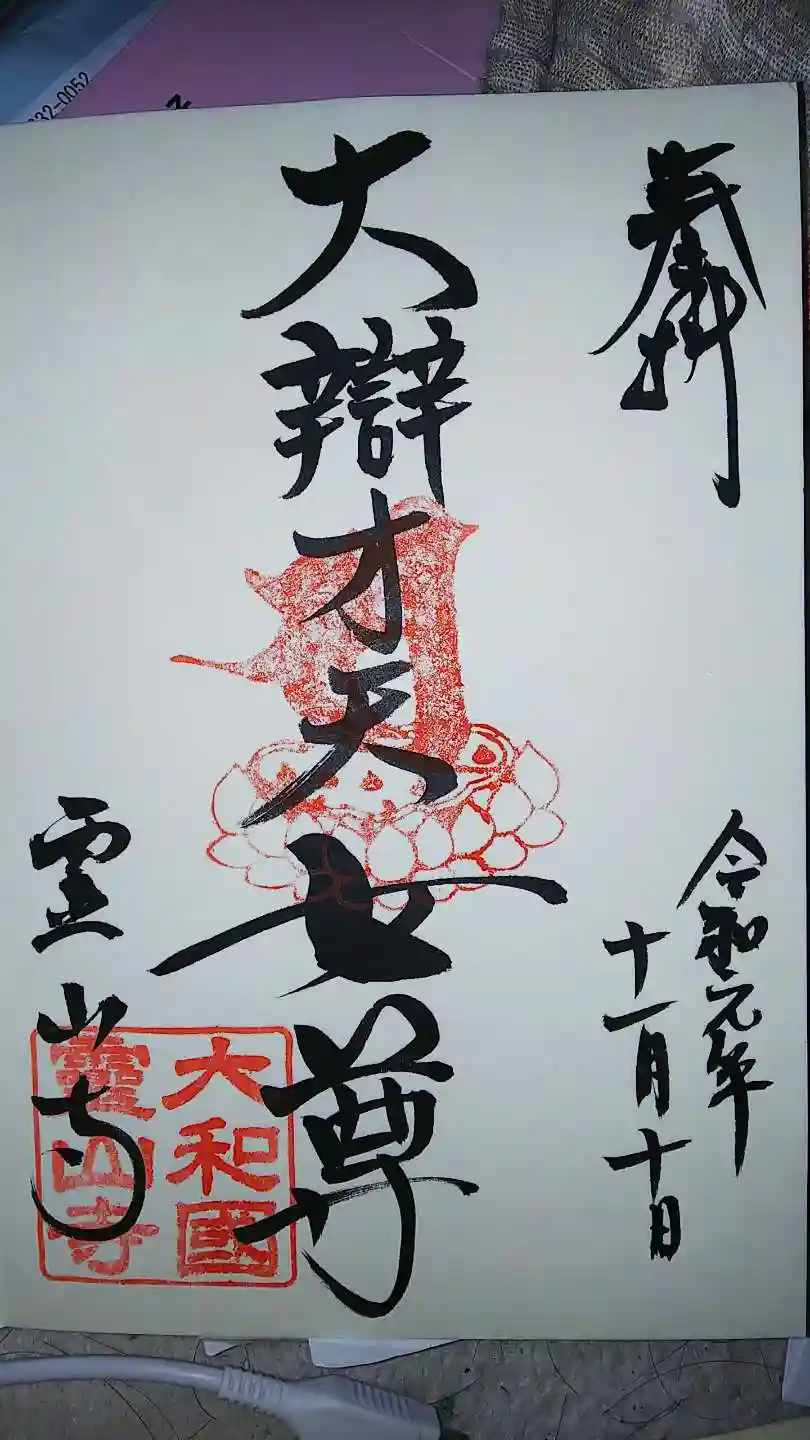 奉拝
令和元年
十一月十日
大辯才天女尊
霊山寺
大和國
靈山寺
332-0052